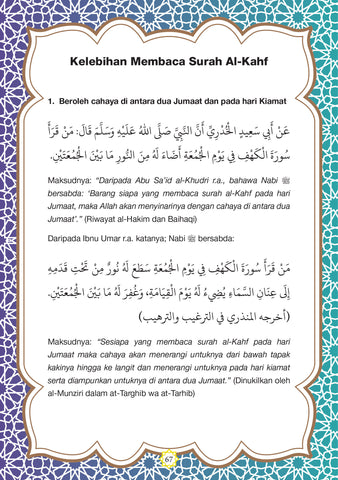 Kelebihan Membaca Surah Al-Kahf
1. Beroleh cahaya di antara dua Jumaat dan pada hari Kiamat
عَنْ أَبِي سَعِيدٍ الْخُدْرِيِّ أَنَّ النَّبِيَّ صَلَّى اللهُ عَلَيْهِ وَسَلَّمَ قَالَ: مَنْ قَرَأَ
سُورَةَ الْكَهْفِ فِي يَوْمِ الْجُمُعَةِ أَضَاءَ لَهُ مِنَ النُّورِ مَا بَيْنَ الْجُمُعَتَيْنِ.
Maksudnya: “Daripada Abu Sa’id al-Khudri r.a., bahawa Nabi ﷺ
bersabda: ‘Barang siapa yang membaca surah al-Kahf pada hari
Jumaat, maka Allah akan menyinarinya dengan cahaya di antara dua
Jumaat’.” (Riwayat al-Hakim dan Baihaqi)
Daripada Ibnu Umar r.a. katanya; Nabi ﷺ bersabda:
مَنْ قَرَأَ سُورَةَ الْكَهْفِ فِي يَوْمِ الْجُمُعَةِ سَطَعَ لَهُ نُورٌ مِنْ تَحْتِ قَدَمِهِ
إِلَى عِنَانِ السَّمَاءِ يُضِيءُ لَهُ يَوْمَ الْقِيَامَةِ، وَغُفِرَ لَهُ مَا بَيْنَ الْجُمُعَتَيْنِ.
(أخرجه المنذري في الترغيب والترهيب)
Maksudnya: “Sesiapa yang membaca surah al-Kahf pada hari
Jumaat maka cahaya akan menerangi untuknya dari bawah tapak
kakinya hingga ke langit dan menerangi untuknya pada hari kiamat
serta diampunkan untuknya di antara dua Jumaat.” (Dinukilkan oleh
al-Munziri dalam at-Targhib wa at-Tarhib)
67